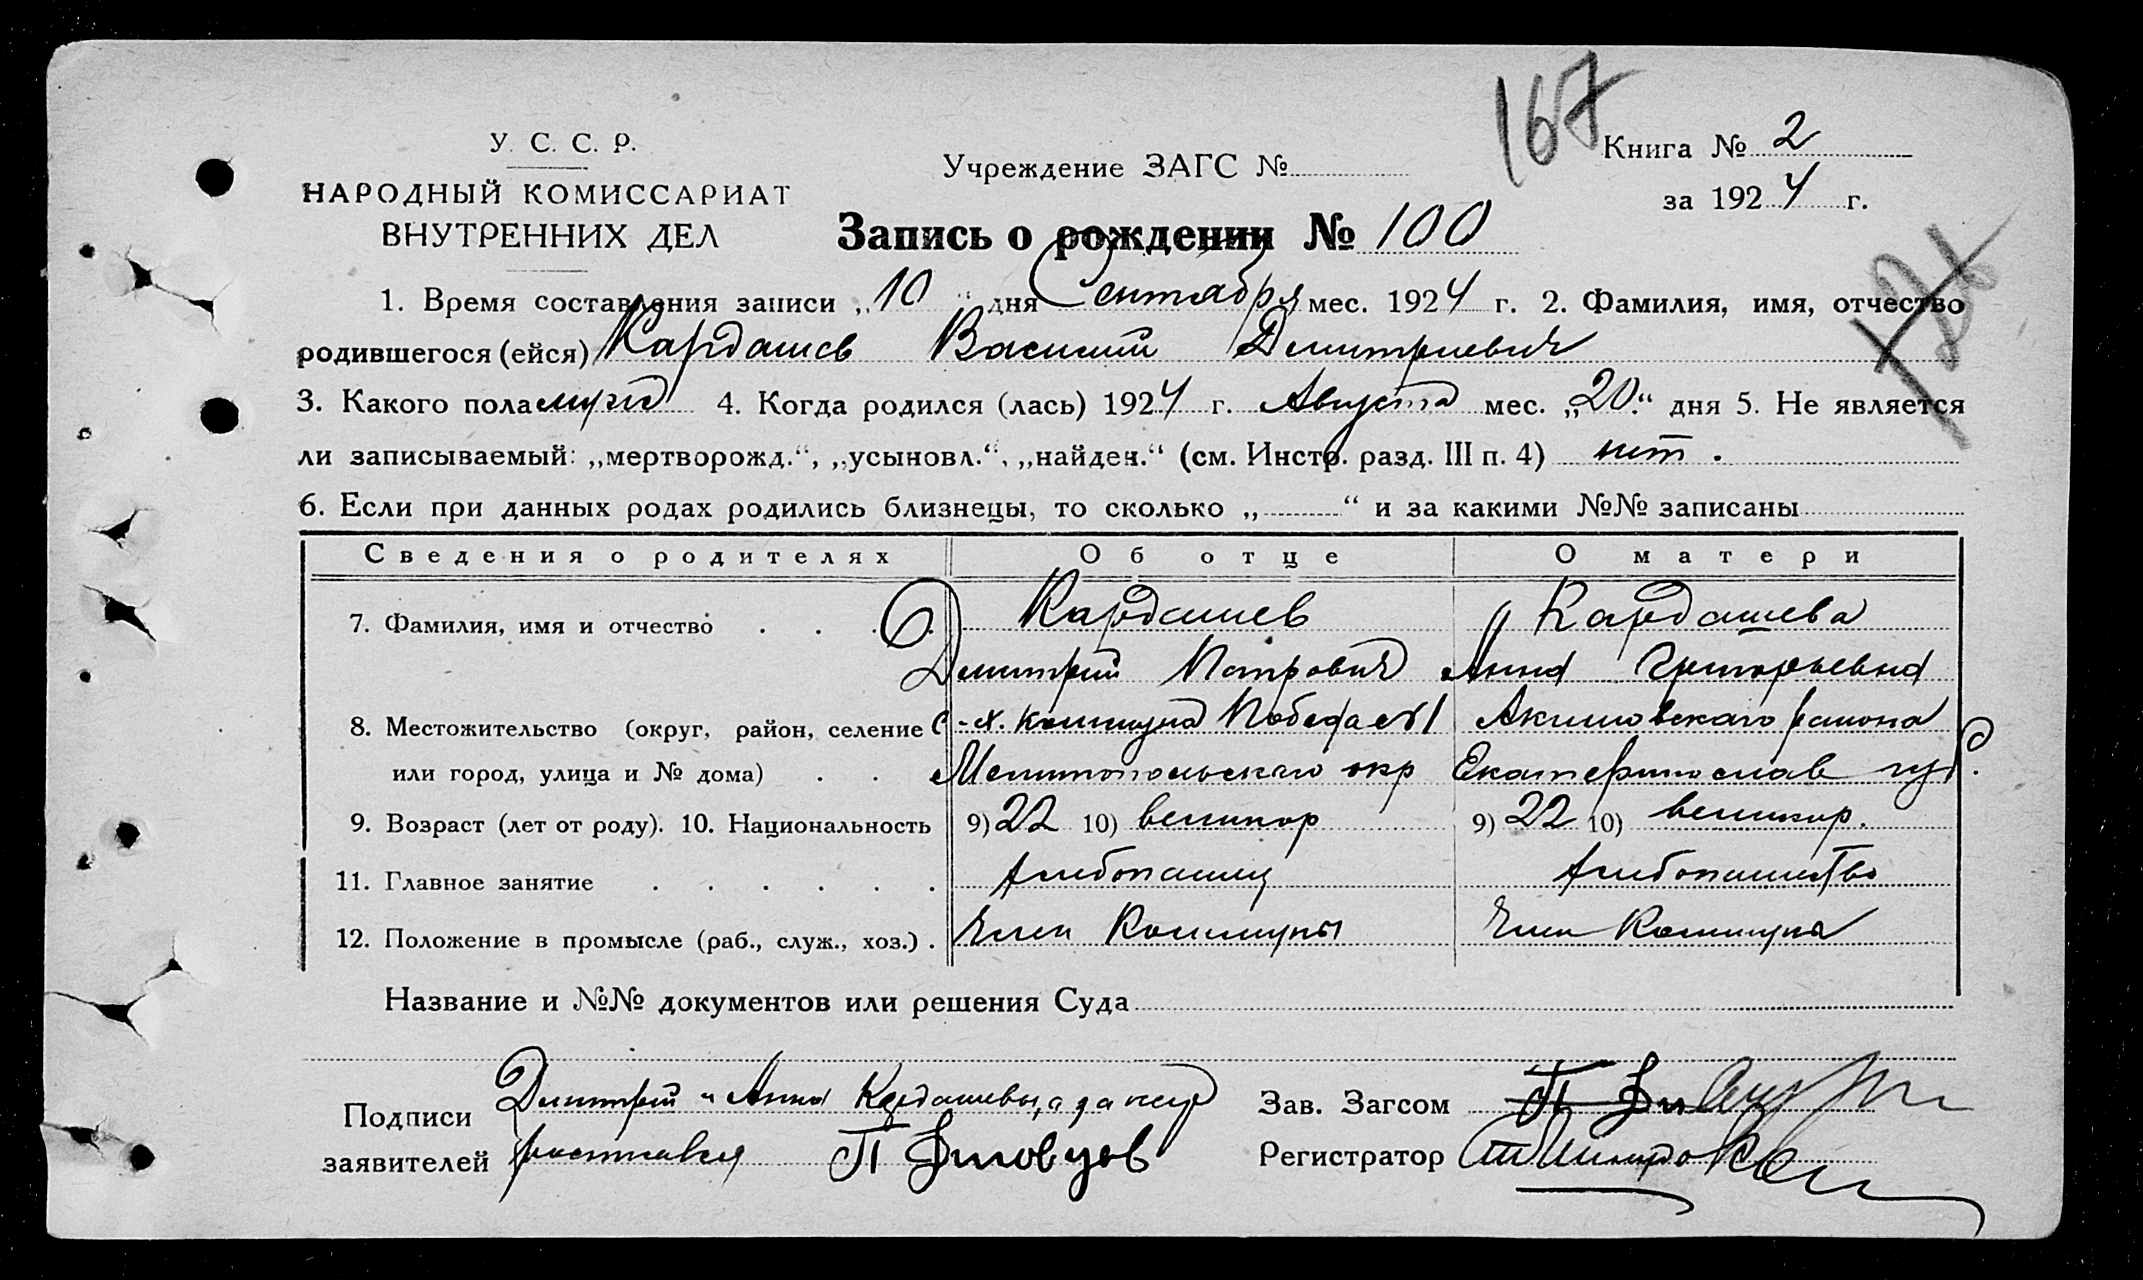 167
У. С. С. Р.
НАРОДНЫЙ КОМИССАРИАТ
ВНУТРЕННИХ ДЕЛ
Учреждение ЗАГС №
Книга № 2
за 1924 г.
Запись о рождении № 100
1. Время составления записи „10“ дня Сентября мес. 1924 г. 2. Фамилия, имя, отчество
родившегося (ейся) Кардашев Василий Дмитриевич
3. Какого пола муж 4. Когда родился (лась) 1924 г. Августа мес. „20“ дня 5. Не является
ли записываемый: „мертворожд.“, „усыновл.“, „найден.“ (см. Инстр. разд. III п. 4) нет.
6. Если при данных родах родились близнецы, то сколько „ “ и за какими №№ записаны
Сведения о родителях Об отце О матери
7. Фамилия, имя и отчество . . . . Кардашев Кардашева
Дмитрий Петрович Анна Григорьевна
8. Местожительство (округ, район, селение С.-х. коммуна Победа Акимовского района
или город, улица и № дома) . . Мелитопольского окр Екатеринослав губ.
9. Возраст (лет от роду). 10. Национальность 9) 22 10) великор 9) 22 10) великор.
11. Главное занятие . . . . . . хлебопашец хлебопашество
12. Положение в промысле (раб., служ., хоз.) . Член Коммуны Член Коммуны
Название и №№ документов или решения Суда
Подписи Дмитрий и Анна Кардашевы, а за негр
заявителей расписался П
Зав. Загсом
Регистратор